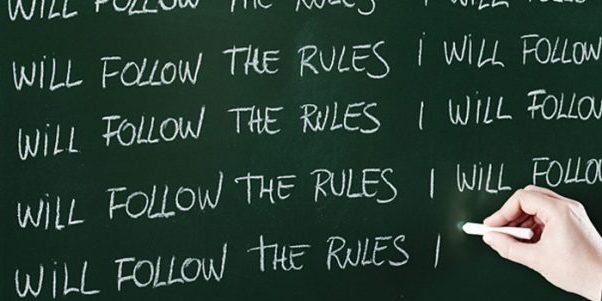 WILL FOLLOW THE RULES I WILL FOLLOW
WILL FOLLOW THE RULES I WILL FOLLOW
WILL FOLLOW THE RULES I WILL FOLLOW
WILL FOLLOW THE RULES I WILL FOLLO
WILL FOLLOW THE RULES I